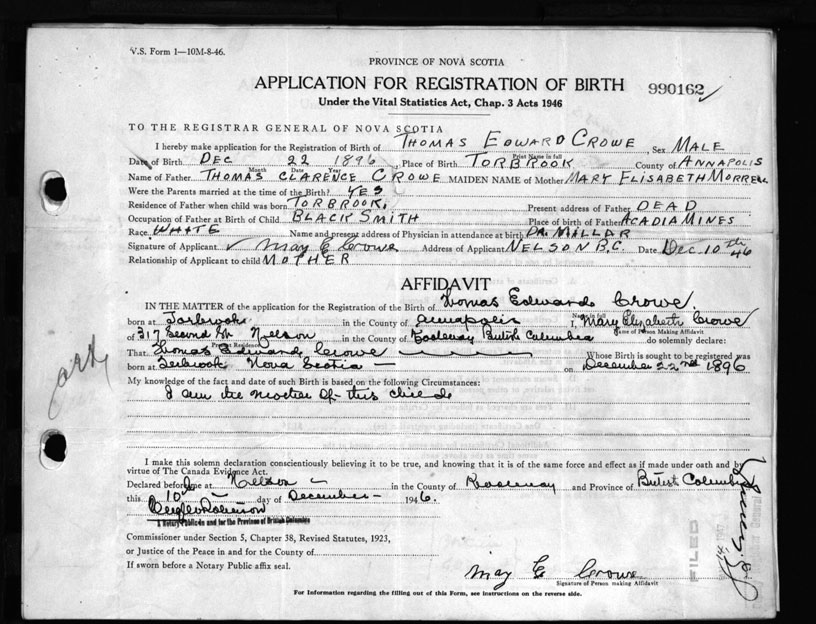 V.S. Form 1—10M-8-46.
PROVINCE OF NOVA SCOTIA
APPLICATION FOR REGISTRATION OF BIRTH 990162
Under the Vital Statistics Act, Chap. 3 Acts 1946
TO THE REGISTRAR GENERAL OF NOVA SCOTIA
I hereby make application for the Registration of Birth of THOMAS EDWARD CROWE, Sex MALE
Print Name in full
Date of Birth DEC 22 1896, Place of Birth TORBROOK County of ANNAPOLIS
Month Date Year
Name of Father THOMAS CLARENCE CROWE MAIDEN NAME of Mother MARY ELISABETH MORRELL
Were the Parents married at the time of the Birth? YES
Residence of Father when child was born TORBROOK. Present address of Father DEAD
Occupation of Father at Birth of Child BLACK SMITH Place of birth of Father ACADIA MINES
Race WHITE Name and present address of Physician in attendance at birth DR. MILLAR
Signature of Applicant May E Crowe Address of Applicant NELSON B.C. Date Dec 10th 46
Relationship of Applicant to child MOTHER
AFFIDAVIT
IN THE MATTER of the application for the Registration of the Birth of Thomas Edward Crowe
born at Torbrook in the County of Annapolis I, Mary Elizabeth Crowe
Name in full
Name of Person Making Affidavit
of 317 Second St Nelson in the County of Kootenay British Columbia do solemnly declare:
Present Residence
That Thomas Edward Crowe Whose Birth is sought to be registered was
born at Torbrook Nova Scotia on December 22nd 1896
My knowledge of the fact and date of such Birth is based on the following Circumstances:
I am the mother of this child
I make this solemn declaration conscientiously believing it to be true, and knowing that it is of the same force and effect as if made under oath and by
virtue of The Canada Evidence Act.
Declared before me at Nelson in the County of Kootenay and Province of British Columbia
this 10th day of December 1946.
A Notary Public in and for the Province of British Columbia
Commissioner under Section 5, Chapter 38, Revised Statutes, 1923,
or Justice of the Peace in and for the County of
If sworn before a Notary Public affix seal.
May E Crowe
Signature of Person making Affidavit
For Information regarding the filling out of this Form, see instructions on the reverse side.
FILED